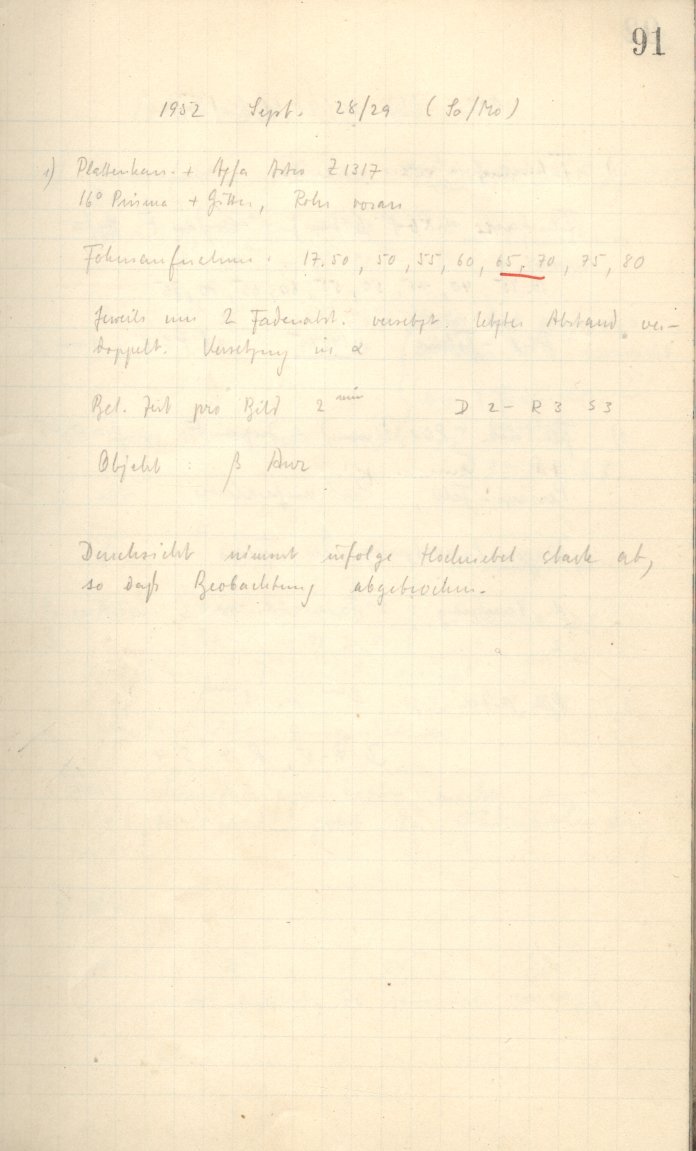 91
1952 Sept. 28/29 (So/Mo)
1) Plattenkass. + Agfa Astro Z1317
16° Prisma + Gitter, Rohr voran
Fokusaufnahmen: 17.50, 50, 55, 60, 65, 70, 75, 80
Jeweils um 2 Fadenabst. versetzt. letzter Abstand ver-
doppelt. Versetzung in α
Bel. Zeit pro Bild 2 min D 2- R 3 S 3
Objekt : β Aur
Durchsicht nimmt infolge Hochnebel stark ab,
so daß Beobachtung abgebrochen.